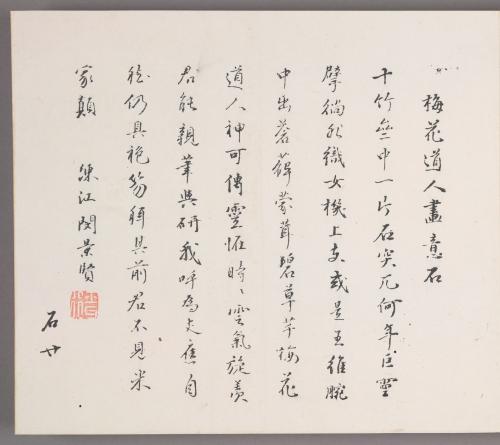 梅花道人畫意石
十竹齋中一片石突兀何年巨靈
擘徜非織女機上支或是王維腕
中出蒼蘚蒙茸碧草芊梅花
道人神可傳靈怪時〻雲氣旋羨
君能親筆與研我呼為丈應自
仍具袍笏拜其前君不見米
家顛 練江閔景賢
石廿